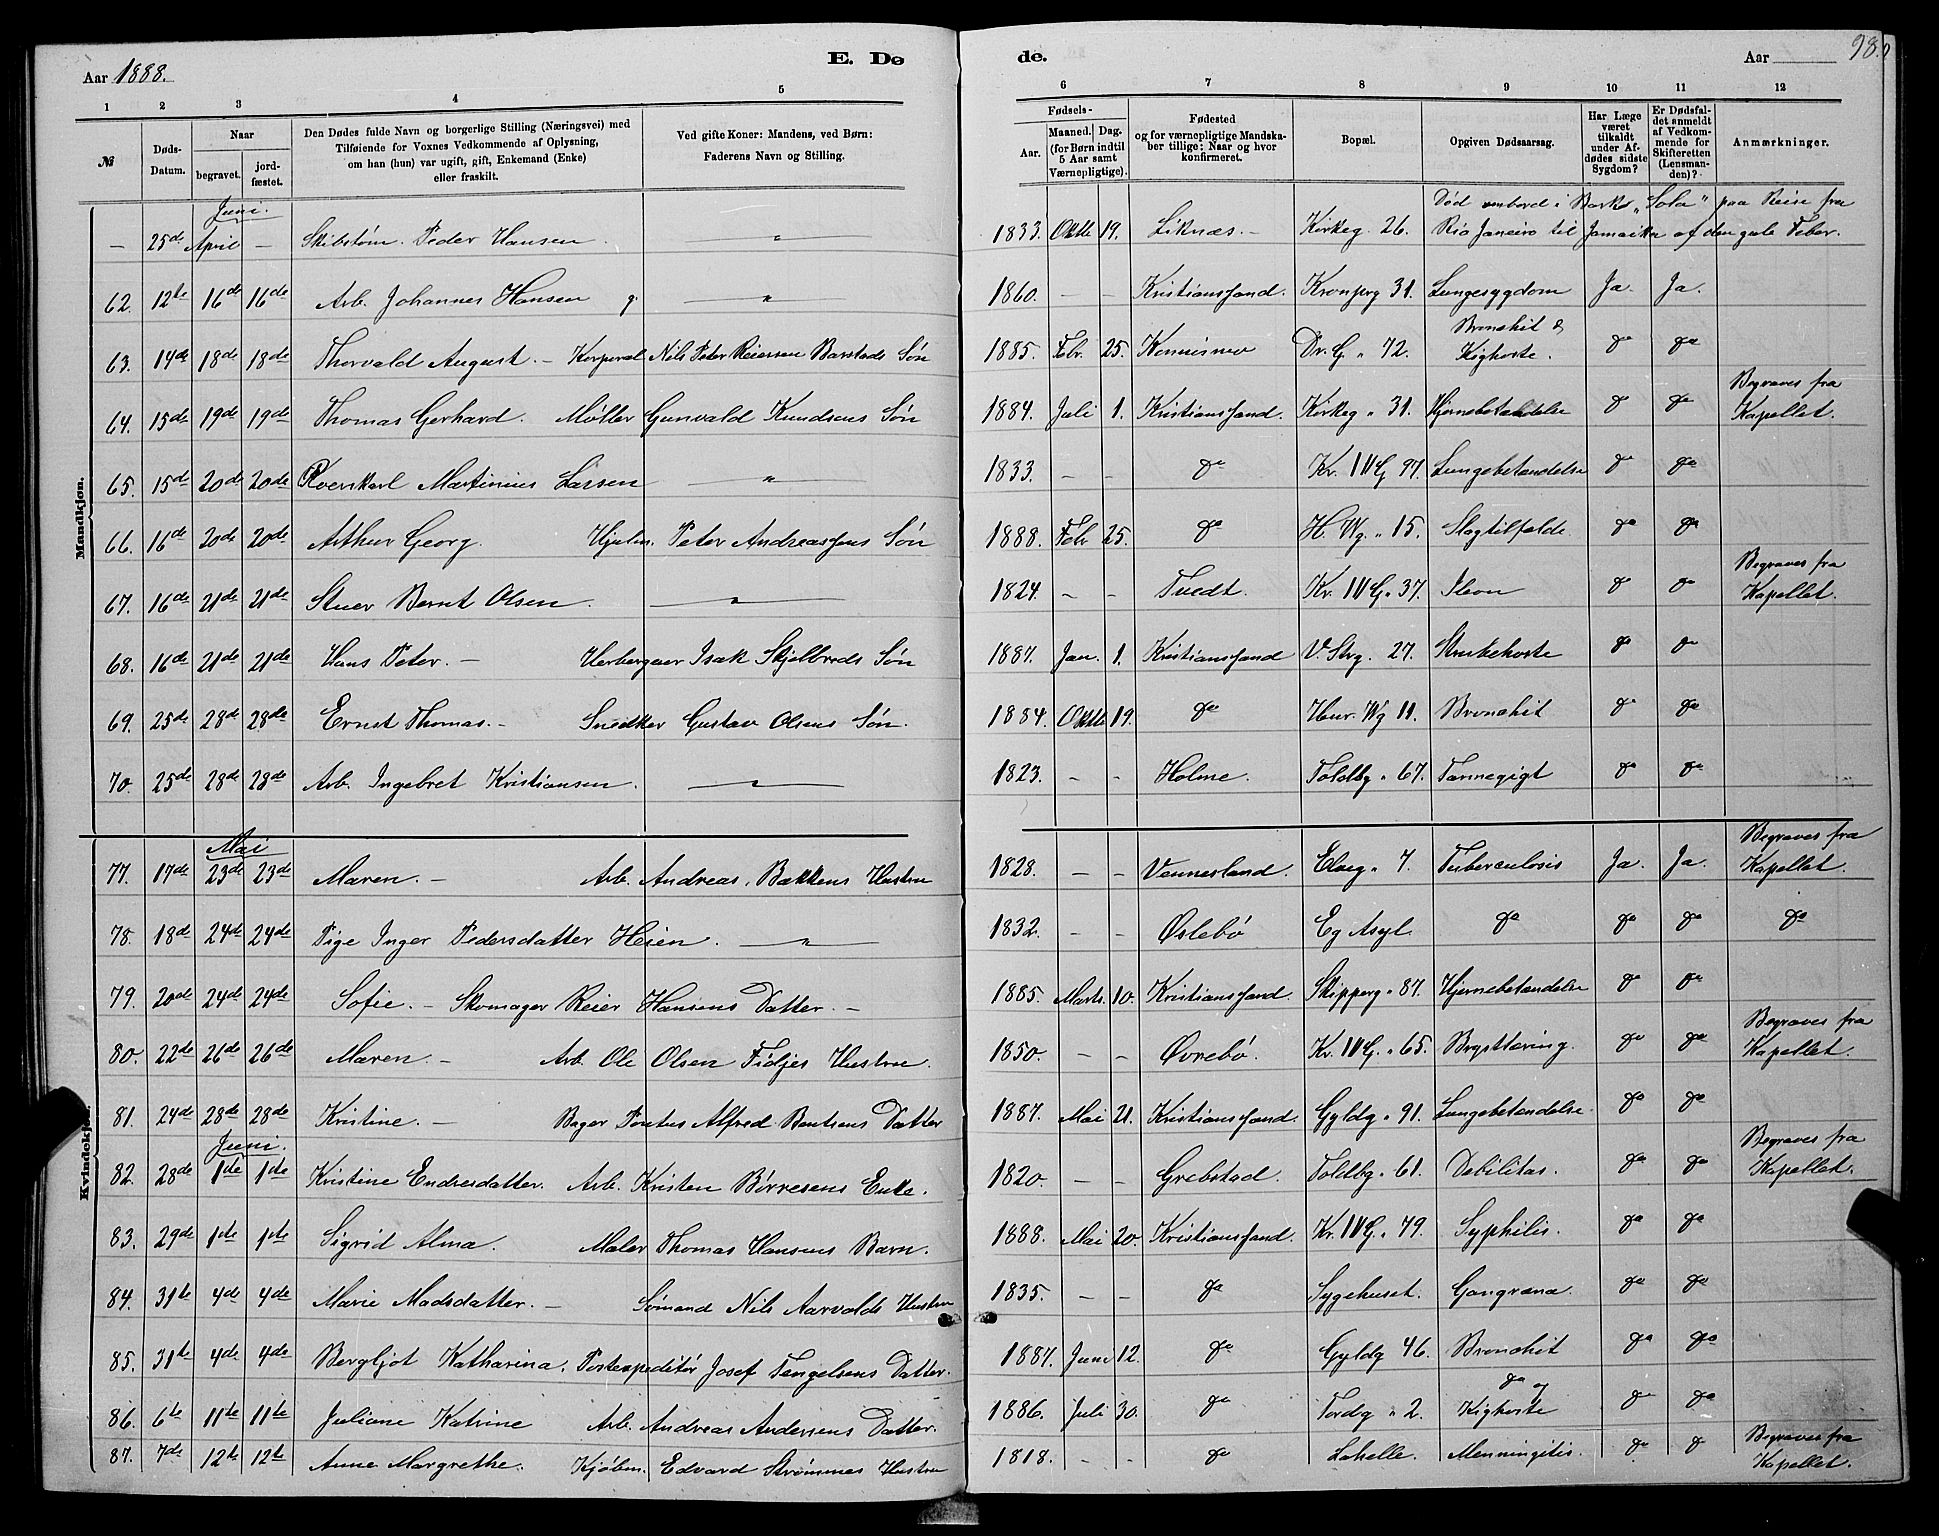 Aar 1888.
E. Dø
de.
Aar
98.
1 2 3 4 5
6 7 8 9 10 11 12
№
Døds-Datum.
Naar
begravet.
jord-fæstet.
Den Dødes fulde Navn og borgerlige Stilling (Næringsvei) med
Tilføiende for Voxnes Vedkommende af Oplysning,
om han (hun) var ugift, gift, Enkemand (Enke)
eller fraskilt.
Ved gifte Koner: Mandens, ved Børn:
Faderens Navn og Stilling.
Fødsels-
Aar.
Maaned. Dag.
(for Børn indtil
5 Aar samt
Værnepligtige).
Fødested
og for værnepligtige Mandska-
ber tillige: Naar og hvor
konfirmeret.
Bopæl.
Opgiven Dødsaarsag.
Har Læge
været
tilkaldt
under Af-
dødes sidste
Sygdom?
Er Dødsfal-
det anmeldt
af Vedkom-
mende for
Skifteretten
(Lensman-
den)?
Anmærkninger.
Mandkjøn.
Juni.
– 25de April – Skibstøm. Peder Hansen. " 1833. Oktb 19. Liknæs. – Kirkeg. 26. Død ombord i Bark "Sola" paa Reise fra
Rio Janeiro til Jamaika af den gule Feber.
62. 12te 16de 16de Arb. Johannes Hansen g. " 1860. – – Kristianssand. Kronprg 31. Lungesygdom Ja. Ja.
63. 14de 18de 18de Thorvald August. – Korporal Nils Peter Reiersen Barstads Søn 1885. Febr. 25. Dr. G. " 72. Bronchit &
Kighoste. do do
64. 15de 19de 19de Thomas Gerhard. Møller Gunvald Knudsens Søn 1884. Juli 1. Kristianssand. Kirkeg " 31. Hjernebetændelse do do Begraves fra
Kapellet.
65. 15de 20de 20de Martinius Larsen " 1833. – – do Kr. IV G 97. Lungebetændelse do do
66. 16de 20de 20de Arthur Georg. Hjulm. Peter Andreassens Søn 1888. Febr 25. do H. Wg. " 15. Slagtilfælde. do do
67. 16de 21de 21de Stuer Bernt Olsen. " 1824. – – Tvedt. Kr. IV G. " 37. Ileon do do Begraves fra
Kapellet.
68. 16de 21de 21de Hans Peter. – Herbergeer Isak Skjelbreds Søn 1887. Jan. 1. Kristianssand V. Strg. 27. Strubehoste do do
69. 25de 28de 28de Ernst Thomas. – Snedker Gustav Olsens Søn. 1884. Oktb 19. do Henr. Wg 11. Bronchit do do
70. 25de 28de 28de Arb. Ingebret Kristiansen. " 1823. – – Holme. Toldbg " 67. Tarmegigt do do
Kvindekjøn.
Mai
77. 17de 23de 23de Maren. – Arb. Andreas. Bakkens Hustru 1828. – – Vennesland. Elveg " 7. Tuberculosis Ja. Ja. Begraves fra
Kapellet.
78. 18de 24de 24de Pige Inger Pedersdatter Heien. " 1832. – – Øslebø Eg Asyl. do do do do
79. 20de 24de 24de Sofie. – Skomager Reier Hansens Datter. – 1885. Marts. 10. Kristianssand. Skipperg " 87. Hjernebetændelse do do
80. 22de 26de 26de Maren. – Arb. Ole Olsen Fidjes Hustru. 1850. – – Øvrebø. Kr. IV G. " 65. Brysttæring. do do Begraves fra
Kapellet.
81. 24de 28de 28de Kristine. – Bager Pontus Alfred Bentsens Datter 1887. Mai 21. Kristianssand. Gyldg " 91. Lungebetændelse. do do
Juni.
82. 28de 1ste 1ste Kristine Endresdatter. Arb. Kristen Børresens Enke. 1820. – – Grebstad. Toldbg " 61. Debilitas. do do Begraves fra
Kapellet.
83. 29de 1ste 1ste Sigrid Alma. Maler Thomas Hansens Barn. 1888. Mai 20. Kristianssand. Kr. IV G. " 79. Syphilis. do do
84. 31te 4de 4de Marie Madsdatter. – Sømand Nils Aarvolds Hustru 1835. – – do Sygehuset. Gangræna. do do
85. 31te 4de 4de Bergljot Katharina. Postexpeditør Josef Tengelsens Datter. 1887. Juni 12. do Gyldg 46. Bronchit do do
86. 6te 11te 11te Juliane Katrine Arb. Andreas Andersens Datter. 1886. Juli 30. do Tordg " 2. do og
Kighoste do do
87. 7de 12te 12te Anne Margrethe. Kjøbm. Edvard Strømmes Hustru 1818. – – do Lahelle. Menningitis. do do Begraves fra
Kapellet.